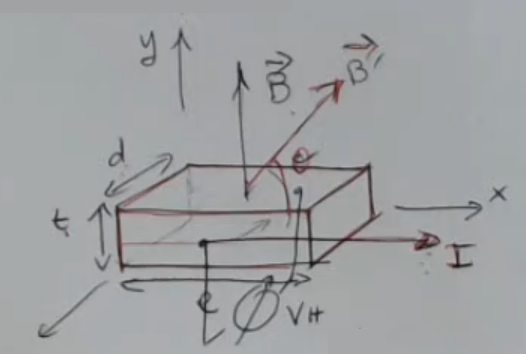 y
B⃗
B⃗'
d
θ
t
x
I
l
V_H